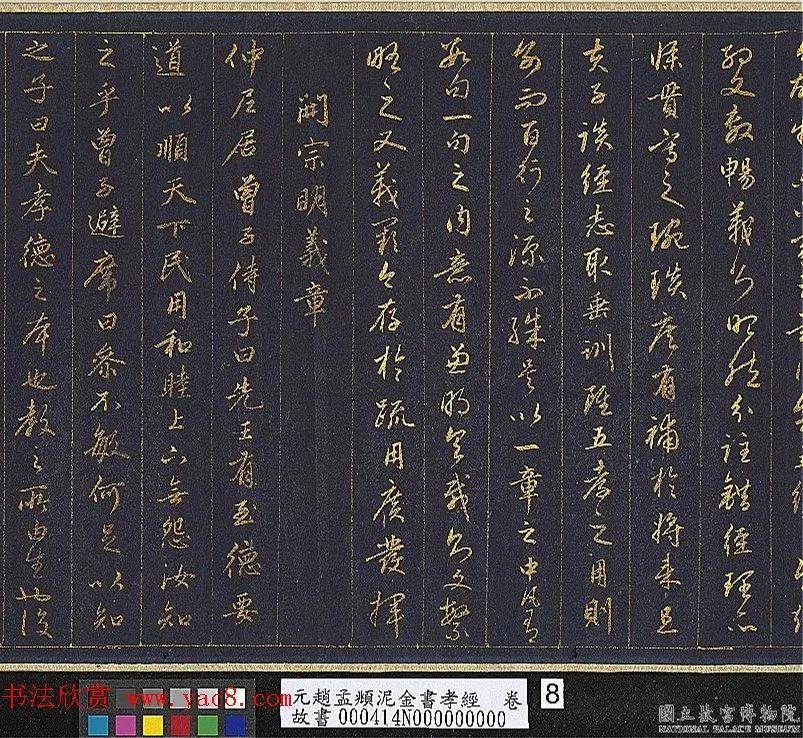 約文敷暢義則昭然分註錯經理亦
條貫寫之琬琰庶有補於將來且
夫子談經志取垂訓雖五孝之用則
別而百行之源不殊是以一章之中凡有
數句一句之內意有兼明具載則文繁
略之又義闕今存於疏用廣發揮
開宗明義章
仲尼居曾子侍子曰先王有至德要
道以順天下民用和睦上下無怨汝知
之乎曾子避席曰參不敏何足以知
之子曰夫孝德之本也教之所由生也復
书法欣赏 www.yac8.com
元趙孟頫泥金書孝經 卷
故書000414N000000000
8
國立故宮博物院
NATIONAL PALACE MUSEUM